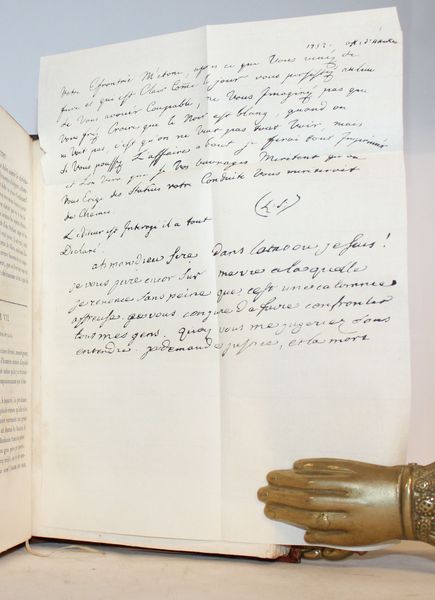 1752.
Votre Efronterie M'étone, après ce que Vous venez de
faire et qui est Clair Come le jour vous persistez au lieu
de Vous avouér Coupable, ne Vous Imaginéz pas que
Vous ferez Croire que le Noir est blanq, quand on
ne Voit pas, c'est qu'on ne Veut pas tout Voir, mais
si Vous poussez L'affaire a bout, je ferai tout Imprimer
et L'on Vera que si Vos ouvrages Meritent qu'on
Vous Erige des Statues votre Conduite Vous meriteroit
des Chaines.
L'editeur est Interogé il a tout
Declaré.
(L. S.)
ah mon dieu sire dans letat ou je suis!
je vous jure encor sur ma vie a laquelle
je renonce sans peine que cest une calomnie
affreuse. je vous conjure de faire confronter
tous mes gens. quoy vous me jugeriez sans
entendre. je demande justice, et la mort